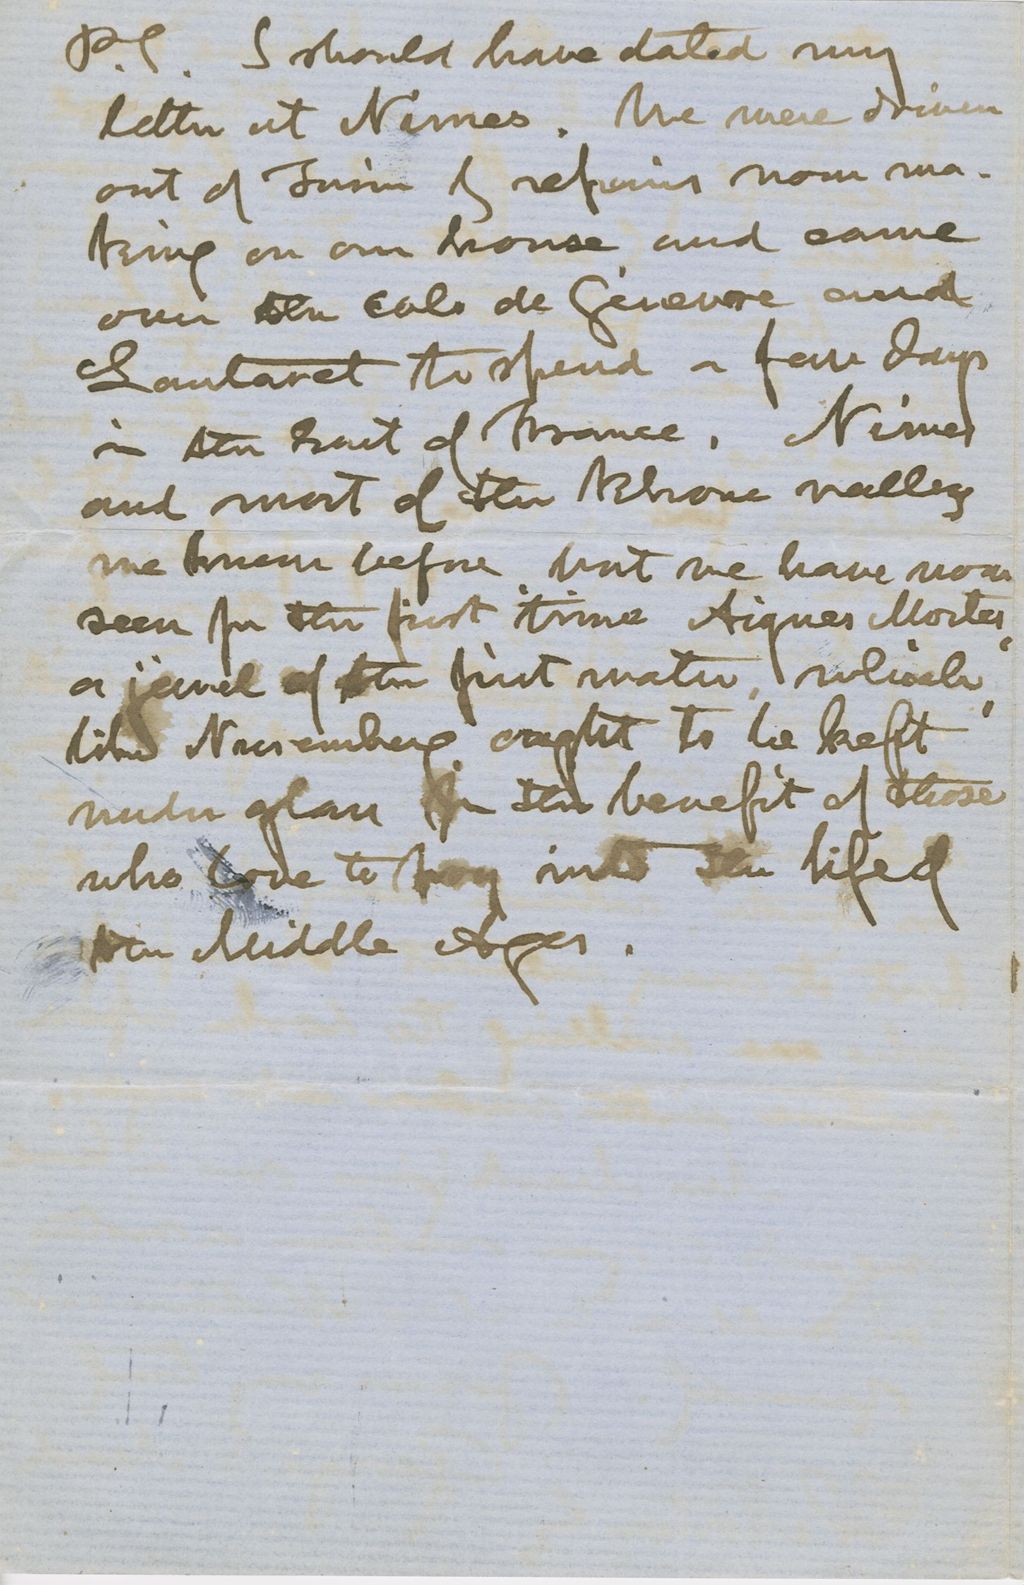 P.S. I should have dated my
letter at Nimes. We were driven
out of Turin by repairs now ma-
king on our house and came
over the cols de Genevre and
Lautaret to spend a few days
in the East of France. Nimes
and most of the Rhone valley
we knew before, but we have now
seen for the first time Aigues Mortes,
a jewel of the first water, which,
like Nuremberg ought to be kept
under glass for the benefit of those
who love to pry into the life of
the Middle Ages.